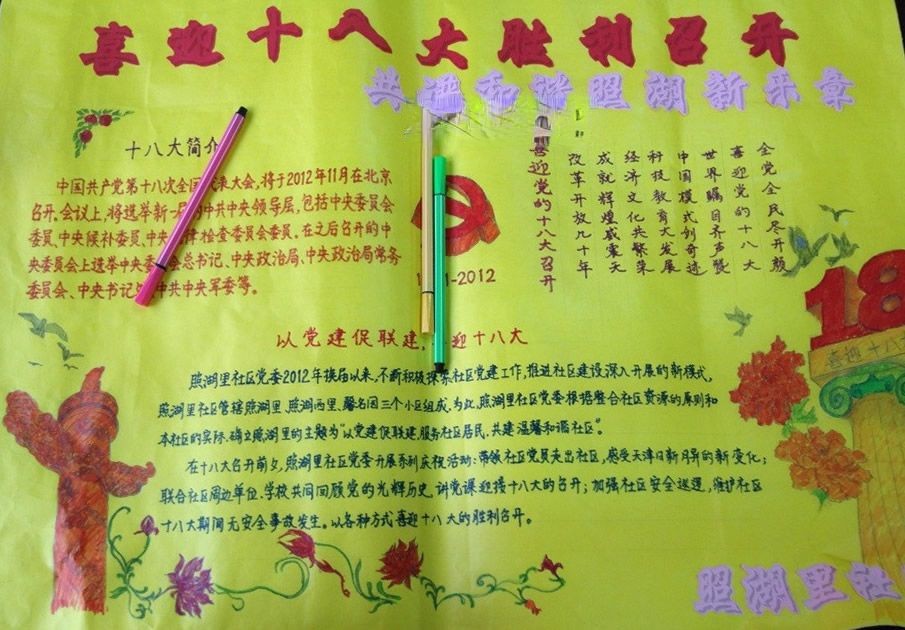 喜迎十八大胜利召开
共谱和谐照湖新乐章
十八大简介
中国共产党第十八次全国代表大会,将于2012年11月在北京
召开,会议上,将选举新一届的中共中央领导层,包括中央委员会
委员、中央候补委员、中央律检查委员会委员、在之后召开的中
央委员会上选举中央委会总书记、中央政治局、中央政治局常务
委员会、中央书记、中共中央军委等。
1-2012
喜迎党的十八大召开
全党全民尽开颜
喜迎党的十八大
世界瞩目齐声赞
中国模式创奇迹
科技教育大发展
经济文化共繁荣
成就辉煌威震天
改革开放九十年
18
喜迎十八大
以党建促联建,迎十八大
照湖里社区党委2012年换届以来,不断积极探索社区党建工作,推进社区建设深入开展的新模式,
照湖里社区管辖照湖里、照湖西里、馨名园三个小区组成,为此,照湖里社区党委根据整合社区资源的原则和
本社区的实际,确立照湖里的主题为“以党建促联建,服务社区居民,共建温馨和谐社区”。
在十八大召开前夕,照湖里社区党委开展系列庆祝活动:带领社区党员走出社区,感受天津日新月异的新变化;
联合社区周边单位、学校共同回顾党的光辉历史,讲党课迎接十八大的召开;加强社区安全巡逻,维护社区
十八大期间无安全事故发生。以各种方式喜迎十八大的胜利召开。
照湖里社